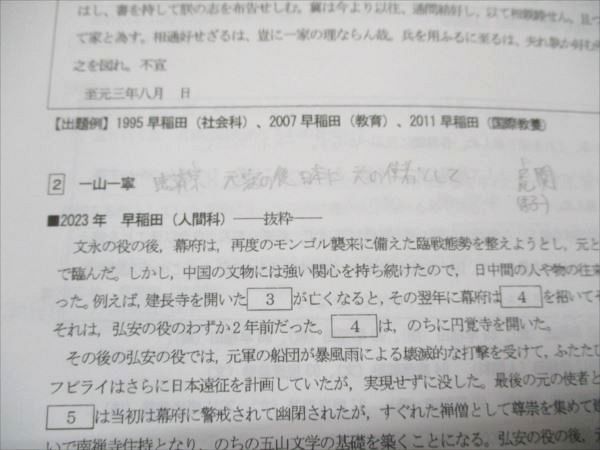 はし、書を持して朕の志を布告せしむ。冀は今より以往、通問結好し、以て相親睦せん。且つ
て家と為す。相通好せざるは、豈に一家の理ならん哉。兵を用ふるに至るは、夫れ孰か好む
之を図れ。不宣
至元三年八月 日
【出題例】1995 早稲田（社会科）、2007 早稲田（教育）、2011 早稲田（国際教養）
2 一山一寧 元寇の後 日本に 元の使者として
■2023 年 早稲田（人間科）――抜粋――
文永の役の後，幕府は，再度のモンゴル襲来に備えた臨戦態勢を整えようとし，元と
で臨んだ。しかし，中国の文物には強い関心を持ち続けたので，日中間の人や物の往来
った。例えば，建長寺を開いた 3 が亡くなると，その翌年に幕府は 4 を招いて
それは，弘安の役のわずか２年前だった。 4 は，のちに円覚寺を開いた。
その後の弘安の役では，元軍の船団が暴風雨による壊滅的な打撃を受けて，ふたたび
フビライはさらに日本遠征を計画していたが，実現せずに没した。最後の元の使者と
5 は当初は幕府に警戒されて幽閉されたが，すぐれた禅僧として尊崇を集めて
いで南禅寺住持となり，のちの五山文学の基礎を築くことになる。弘安の役の後，元